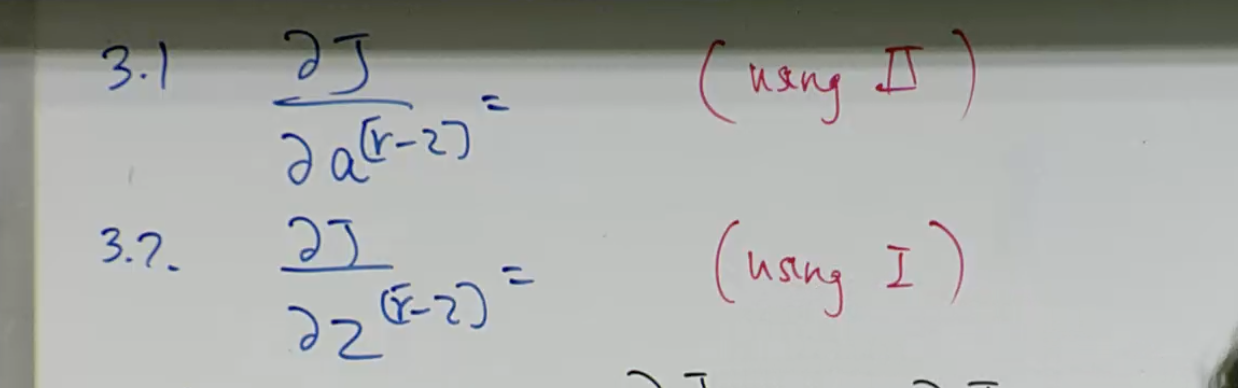 3.1 ∂J/∂a^[r-2] = (using II)
3.2. ∂J/∂z^[r-2] = (using I)
∂J ∂J